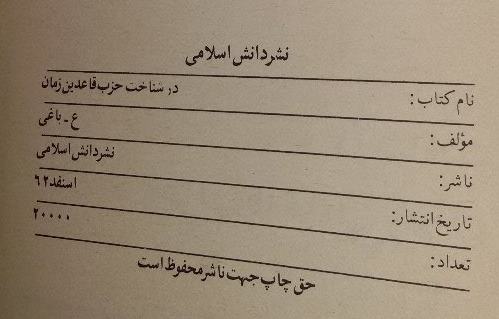 نشر دانش اسلامی
نام کتاب: در شناخت حزب قاعدین زمان
مؤلف: ع ـ باغی
ناشر: نشر دانش اسلامی
تاریخ انتشار: اسفند ۶۲
تعداد: ۲۰۰۰۰
حق چاپ جهت ناشر محفوظ است